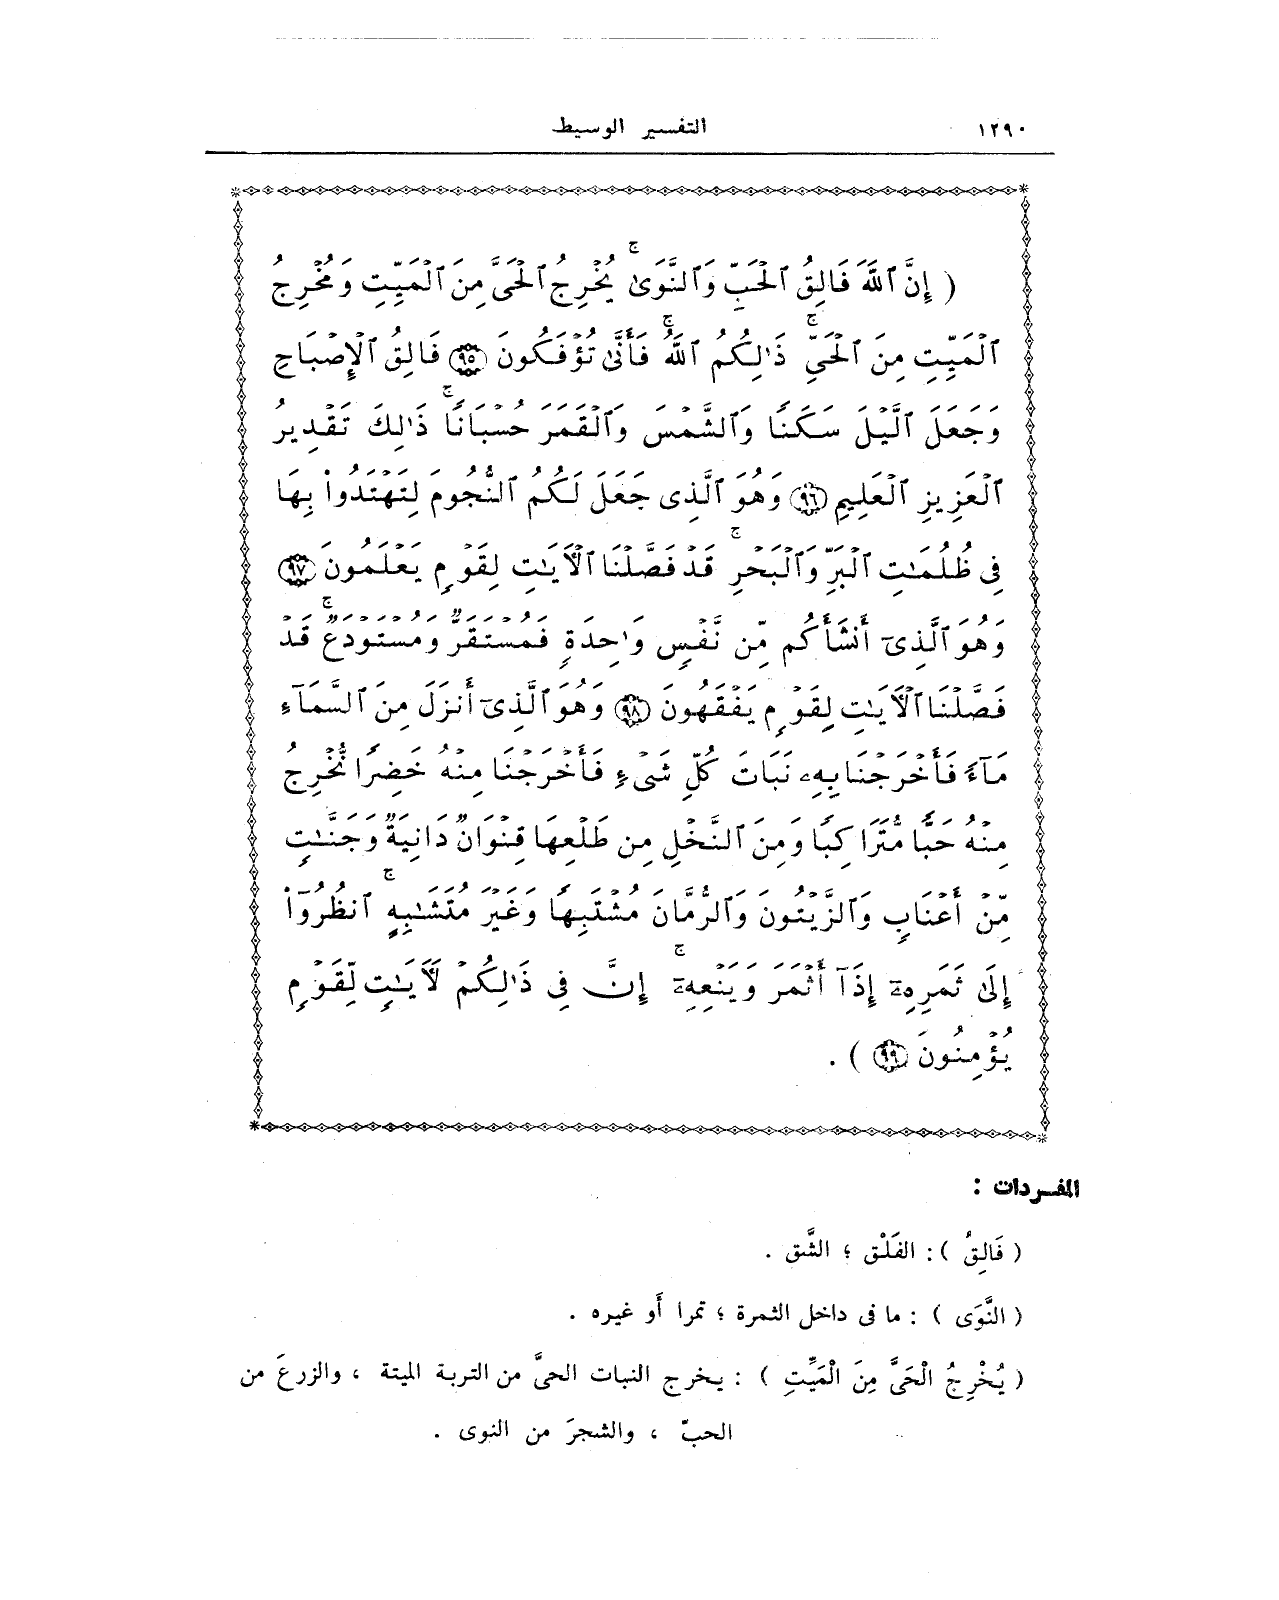 ١٢٩٠ التفسير الوسيط
( إِنَّ ٱللَّهَ فَالِقُ ٱلْحَبِّ وَٱلنَّوَىٰ ۖ يُخْرِجُ ٱلْحَىَّ مِنَ ٱلْمَيِّتِ وَمُخْرِجُ
ٱلْمَيِّتِ مِنَ ٱلْحَىِّ ۚ ذَٰلِكُمُ ٱللَّهُ ۖ فَأَنَّىٰ تُؤْفَكُونَ ﴿٩٥﴾ فَالِقُ ٱلْإِصْبَاحِ
وَجَعَلَ ٱلَّيْلَ سَكَنًا وَٱلشَّمْسَ وَٱلْقَمَرَ حُسْبَانًا ۚ ذَٰلِكَ تَقْدِيرُ
ٱلْعَزِيزِ ٱلْعَلِيمِ ﴿٩٦﴾ وَهُوَ ٱلَّذِى جَعَلَ لَكُمُ ٱلنُّجُومَ لِتَهْتَدُوا۟ بِهَا
فِى ظُلُمَٰتِ ٱلْبَرِّ وَٱلْبَحْرِ ۗ قَدْ فَصَّلْنَا ٱلْآيَٰتِ لِقَوْمٍ يَعْلَمُونَ ﴿٩٧﴾
وَهُوَ ٱلَّذِىٓ أَنشَأَكُم مِّن نَّفْسٍ وَٰحِدَةٍ فَمُسْتَقَرٌّ وَمُسْتَوْدَعٌ ۗ قَدْ
فَصَّلْنَا ٱلْآيَٰتِ لِقَوْمٍ يَفْقَهُونَ ﴿٩٨﴾ وَهُوَ ٱلَّذِىٓ أَنزَلَ مِنَ ٱلسَّمَآءِ
مَآءً فَأَخْرَجْنَا بِهِۦ نَبَاتَ كُلِّ شَىْءٍ فَأَخْرَجْنَا مِنْهُ خَضِرًا نُّخْرِجُ
مِنْهُ حَبًّا مُّتَرَاكِبًا وَمِنَ ٱلنَّخْلِ مِن طَلْعِهَا قِنْوَانٌ دَانِيَةٌ وَجَنَّٰتٍ
مِّنْ أَعْنَابٍ وَٱلزَّيْتُونَ وَٱلرُّمَّانَ مُشْتَبِهًا وَغَيْرَ مُتَشَٰبِهٍ ۗ ٱنظُرُوٓا۟
إِلَىٰ ثَمَرِهِۦٓ إِذَآ أَثْمَرَ وَيَنْعِهِۦٓ ۚ إِنَّ فِى ذَٰلِكُمْ لَآيَٰتٍ لِّقَوْمٍ
يُؤْمِنُونَ ﴿٩٩﴾ ) .
المفردات :
( فَالِقُ ) : الفَلْق ؛ الشَّق .
( النَّوَى ) : ما فى داخل الثمرة ؛ تمرا أَو غيره .
( يُخْرِجُ الْحَىَّ مِنَ الْمَيِّتِ ) : يخرج النبات الحىَّ من التربة الميتة ، والزرعَ من
الحبّ ، والشجرَ من النوى .